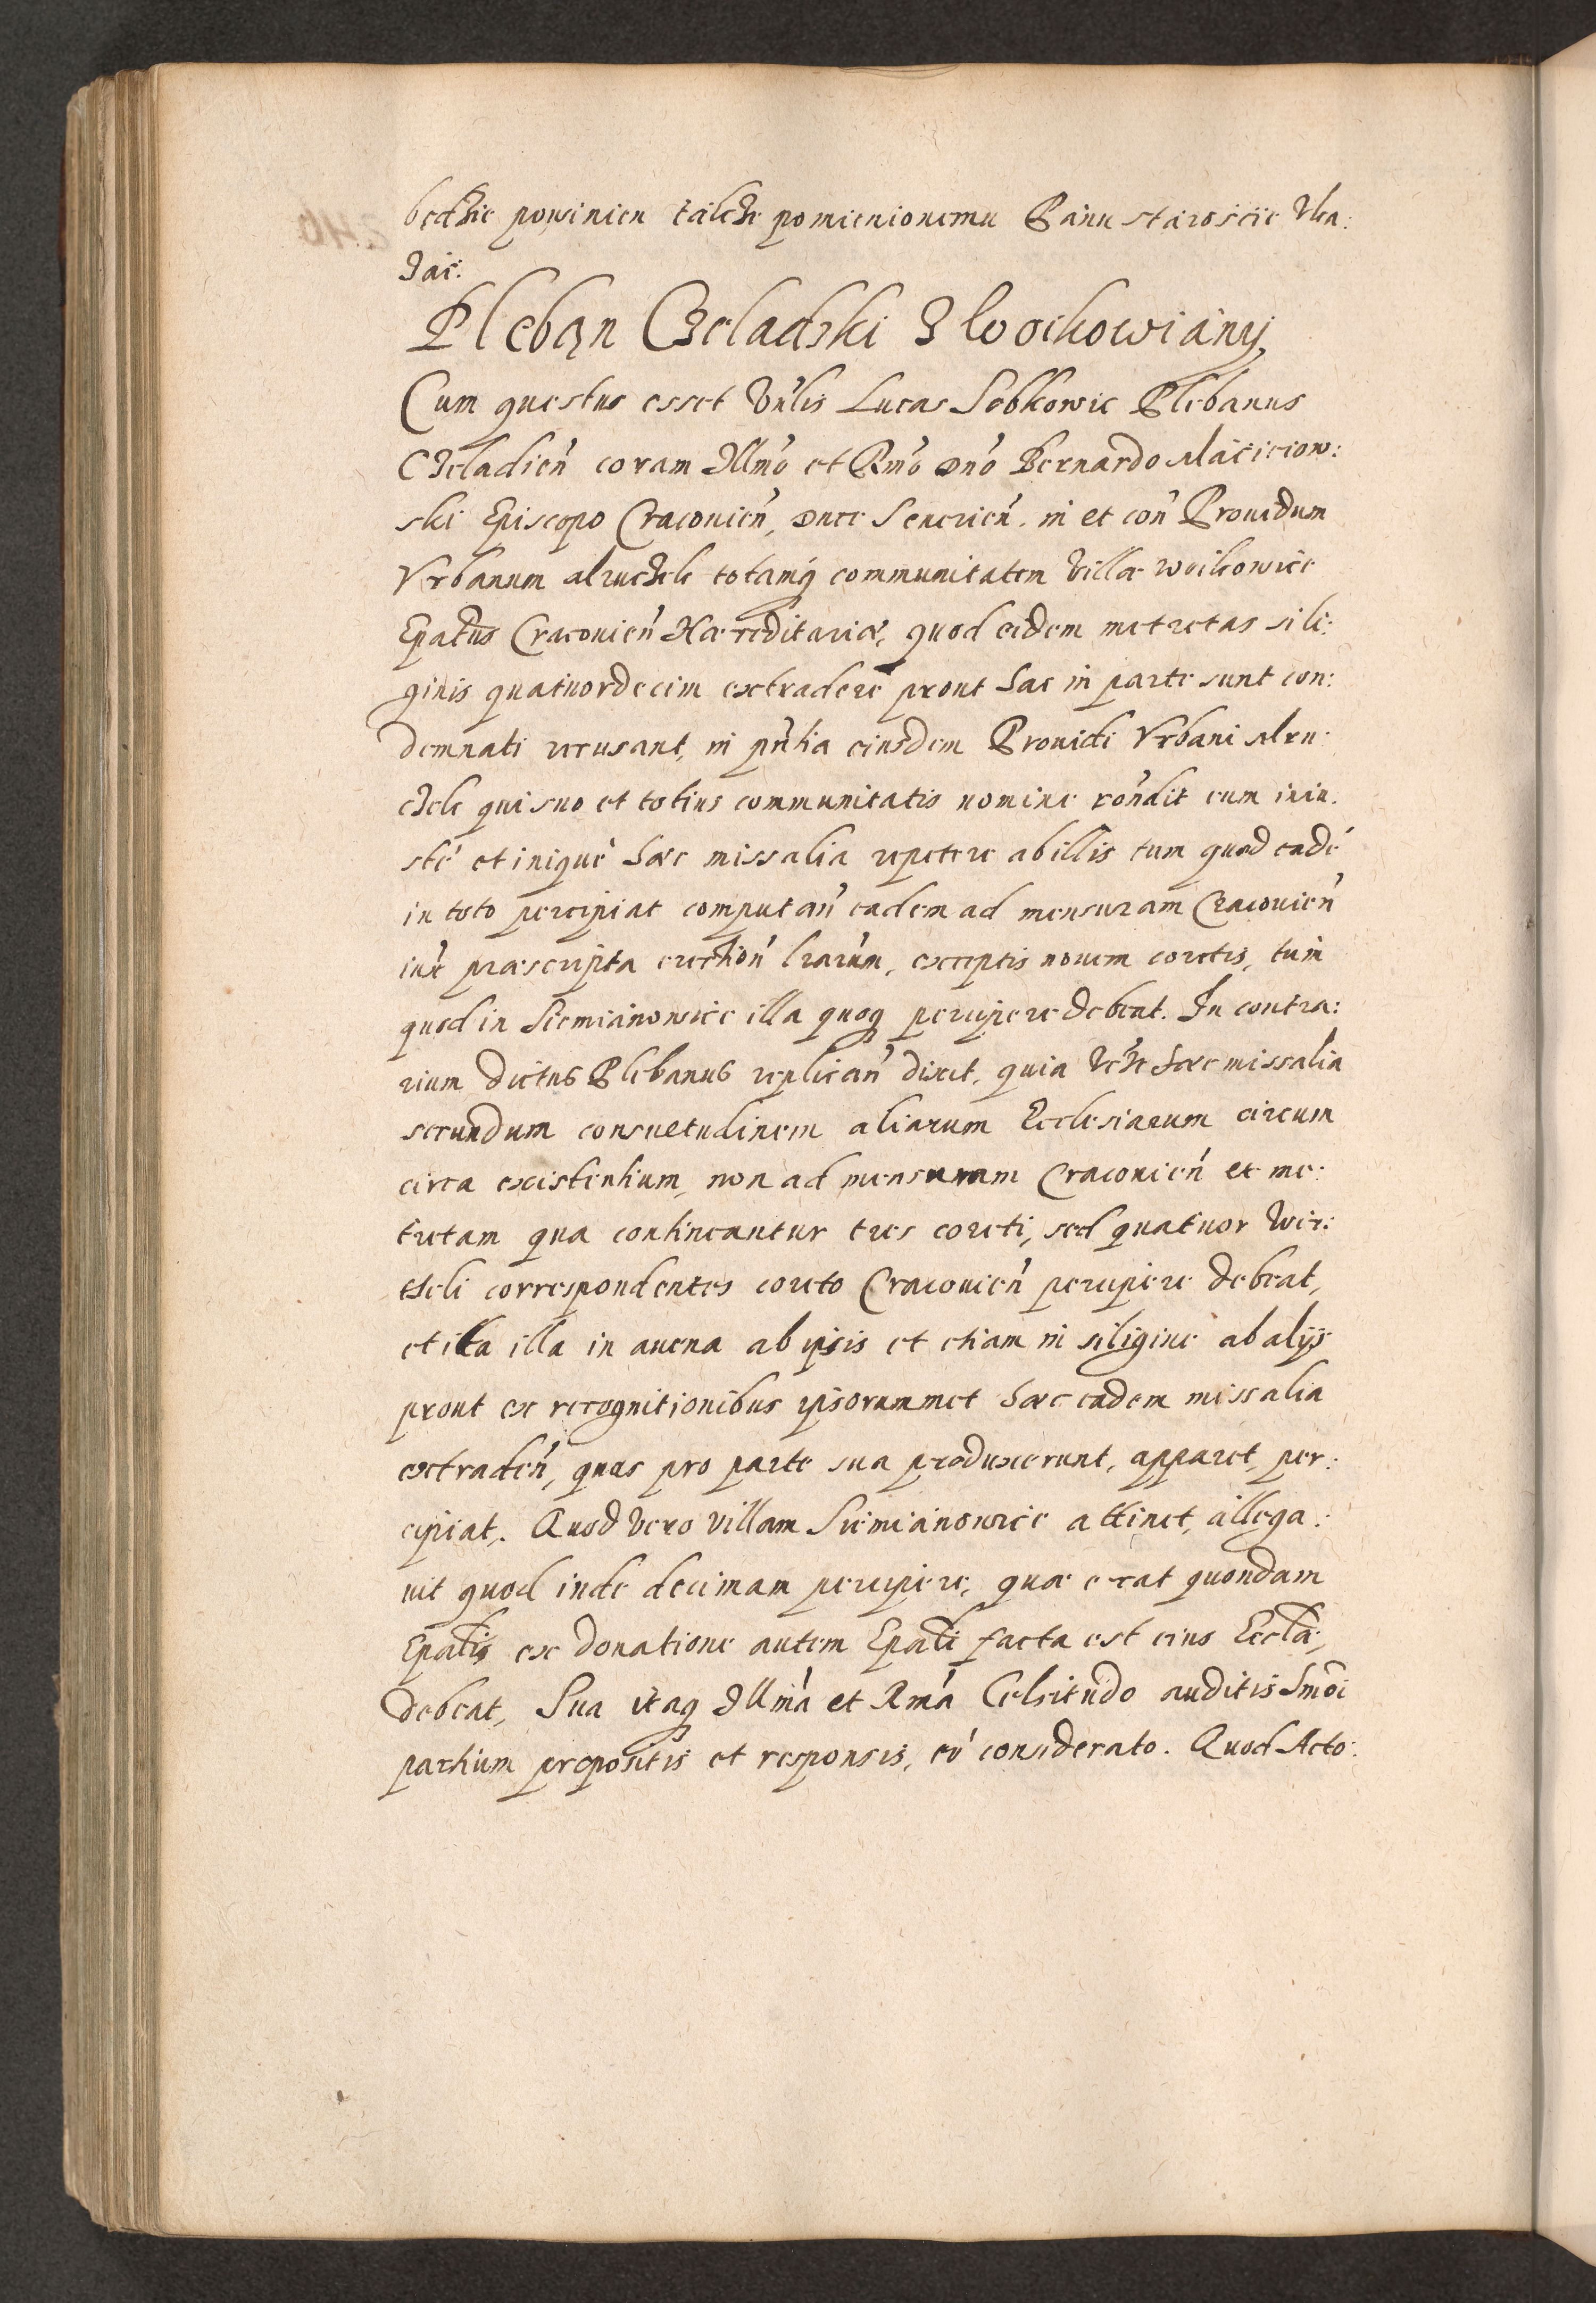 bedzie powinien takze pomienionemu Panu staroscie vka:
zac.
Pleban Czeladzki z Woikowiany,
Cum questus esset Vn'lis Lucas Sobkowic Plebanus
Czeladien' coram Illm'o et Rm'o Dn'o Bernardo Macieiow:
ski Episcopo Cracouien', Duce Seuerien'. in et con' Prouidum
Vrbanum Mruczek totamq communitatem Villæ Woikowice
Epatus Cracouien' Hæreditariæ, quod eidem metretas sili:
ginis quatuordecim extradere prout hac in parte sunt con:
demnati recusant, in pn'tia eiusdem Prouidi Vrbani Mru:
czek qui suo et totius communitatis nomine ron'dit eum iniu:
stè et iniquè hæc missalia repetere ab illis tum quod eadé
in toto percipiat computan' eadem ad mensuram Cracouien'
iux' præscripta erection' l'rarum, exceptis nouem coretis, tum
quod in Siemianowice illa quoq percipere debeat. In contra:
rium dictus Plebanus replican' dixit, quia hæc missalia
secundum consuetudinem aliarum Ecclesiarum circum
circa existentium, non ad mensuram Cracouien' et me:
tretam qua contineantur tres coreti, sed quatuor Wier:
teli correspondentes coreto Cracouien' percipere debeat,
et ita illa in auena ab ipsis et etiam in siligine ab alijs
prout ex recognitionibus ipsorummet hæc eadem missalia
extraden', quas pro parte sua produxerunt, apparet, per:
cipiat. Quod vero villam Siemianowice attinet, allega:
uit quod inde decimam percipere, quæ erat quondam
Epalis ex donatione autem Epali facta est eius Eccl'æ,
debeat, Sua itaq Illm'a et Rm'a Celsitudo auditis hm'oi
partium propositis et responsis, eo' considerato. Quod Acto: